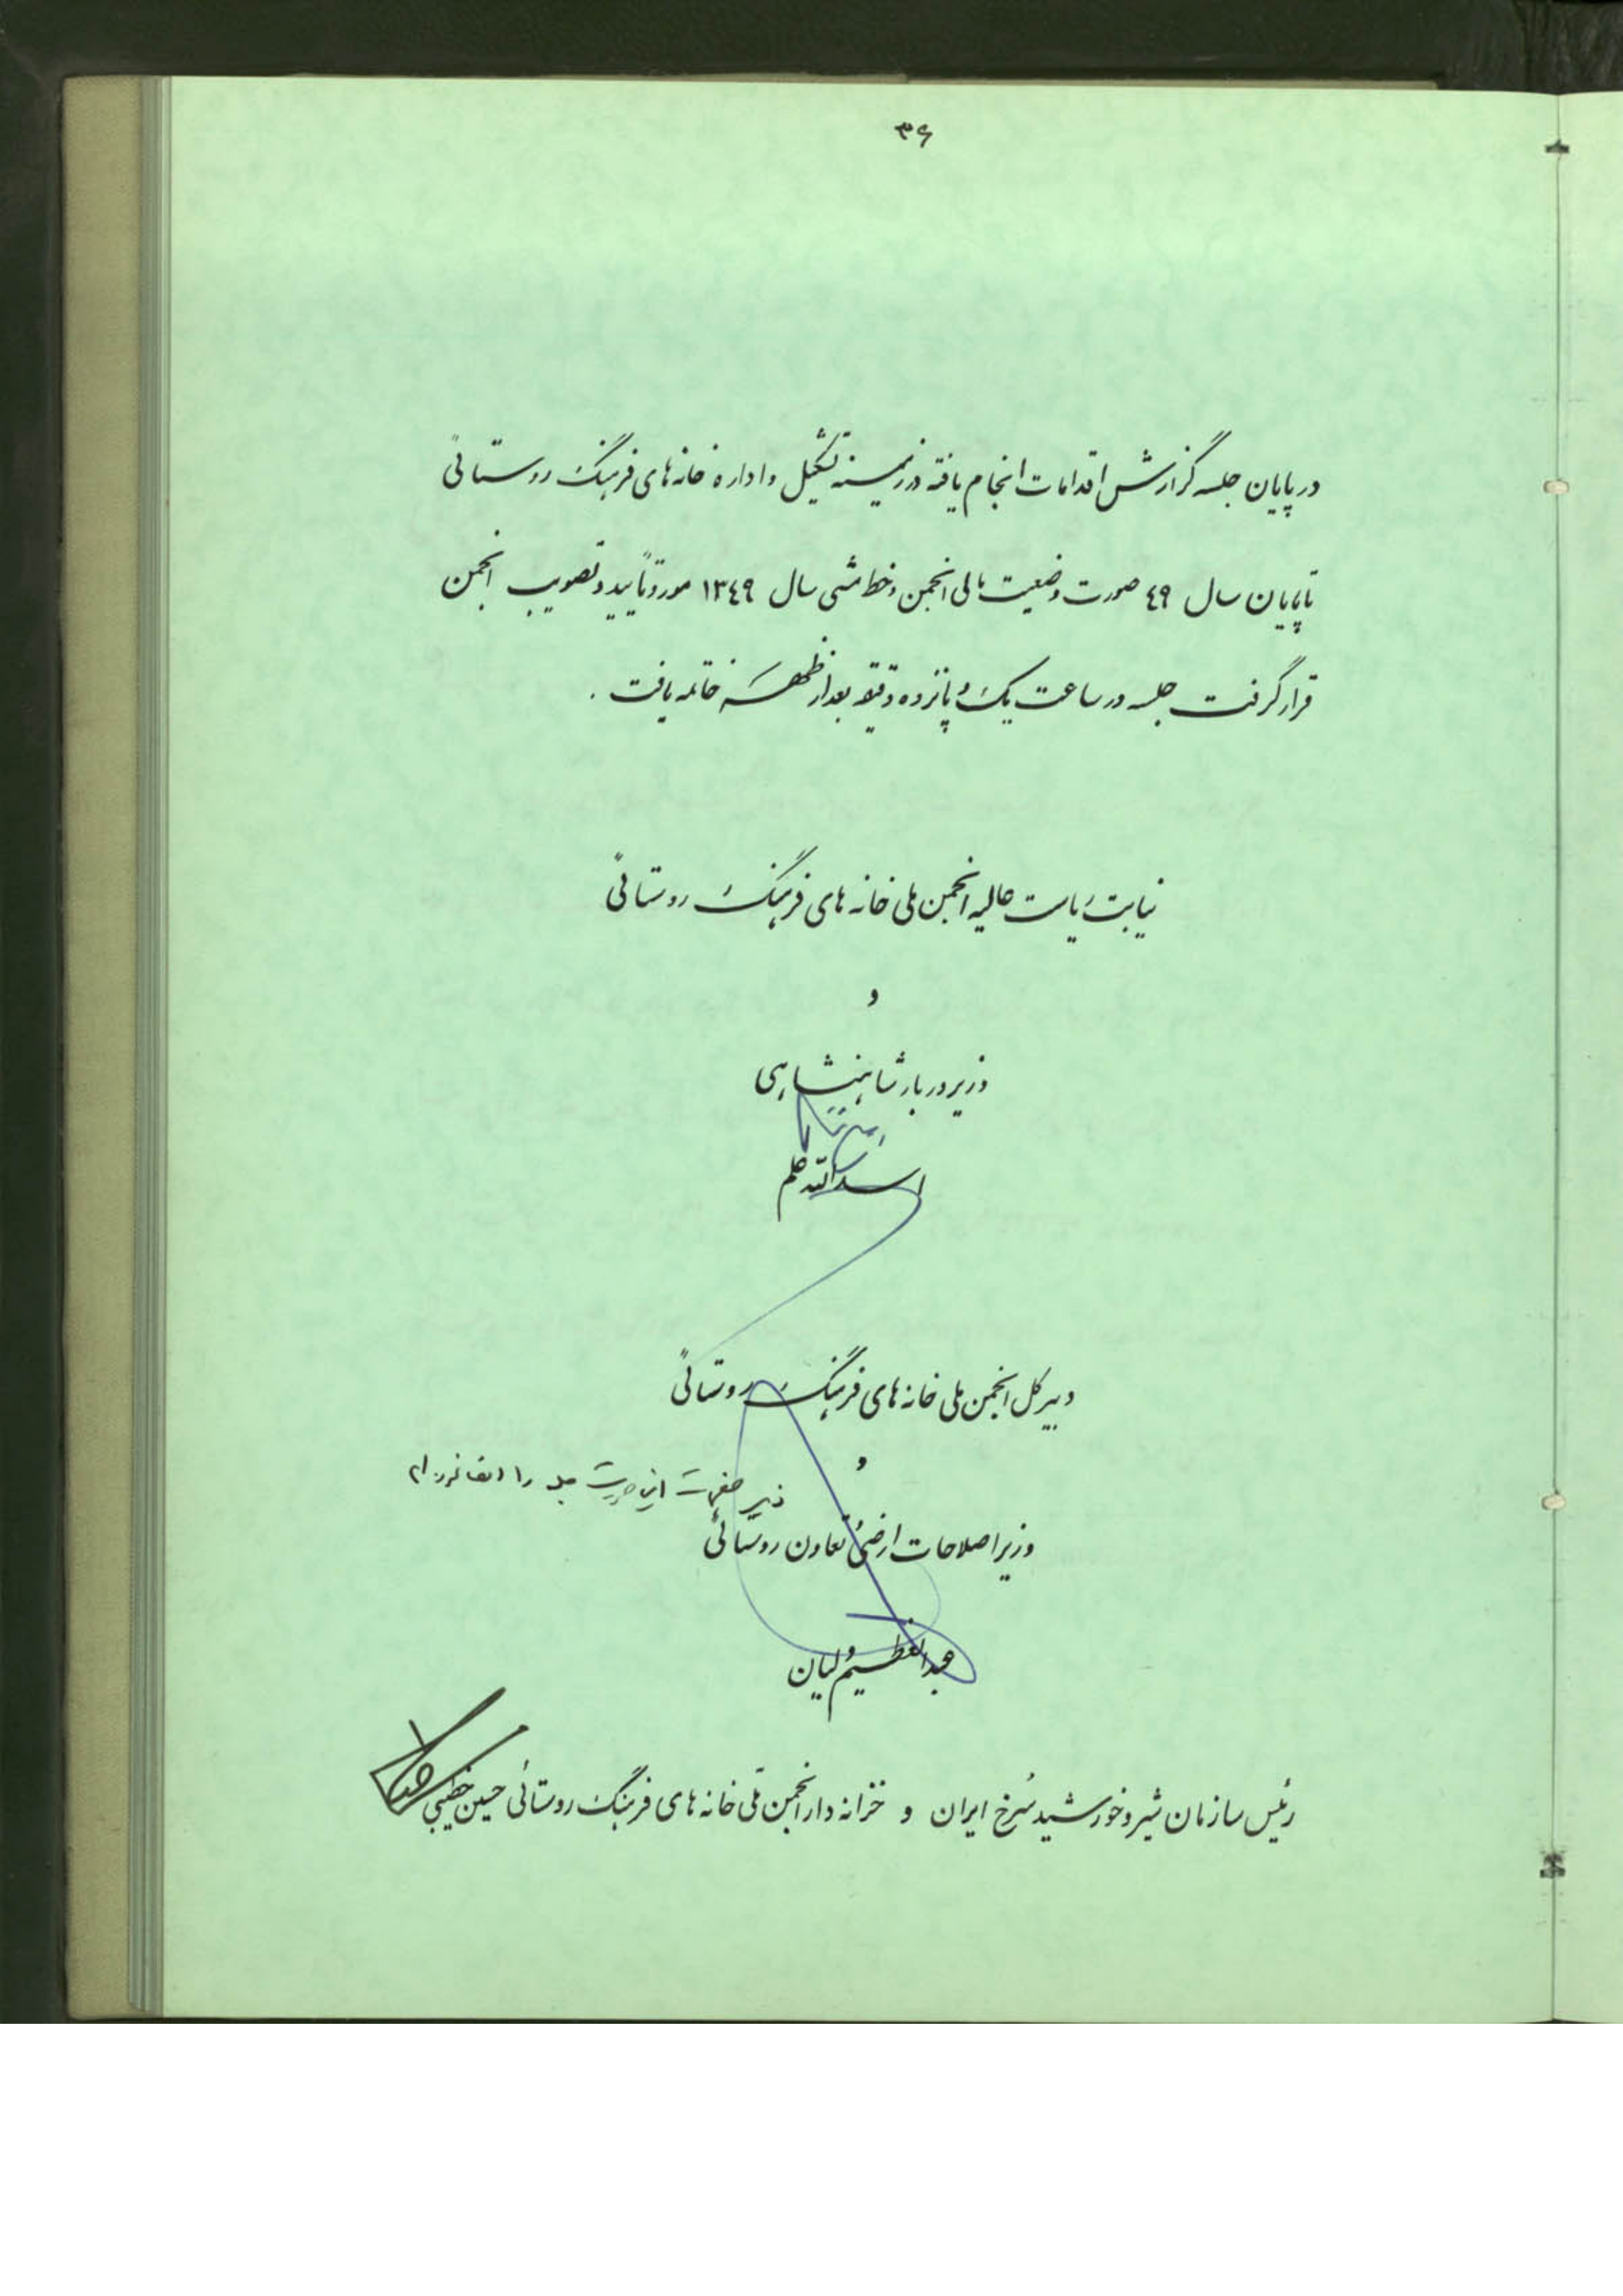 ۳۶
در پایان جلسه گزارش اقدامات انجام یافته در زمینه تشکیل و اداره خانه های فرهنگ روستائی
تا پایان سال ٤٩ صورت وضعیت مالی انجمن و خط مشی سال ١٣٤٩ مورد تأیید و تصویب انجمن
قرار گرفت جلسه در ساعت یک و پانزده دقیقه بعد از ظهر خاتمه یافت .
نیابت ریاست عالیه انجمن ملی خانه های فرهنگ روستائی
و
وزیر دربار شاهنشاهی
اسدالله علم
دبیر کل انجمن ملی خانه های فرهنگ روستائی
و
زیر صفحات این صورت جلسه را امضا نموده ام
وزیر اصلاحات ارضی و تعاون روستائی
عبدالعظیم ولیان
رئیس سازمان شیر و خورشید سُرخ ایران و خزانه دار انجمن ملّی خانه های فرهنگ روستائی حسین خطیبی